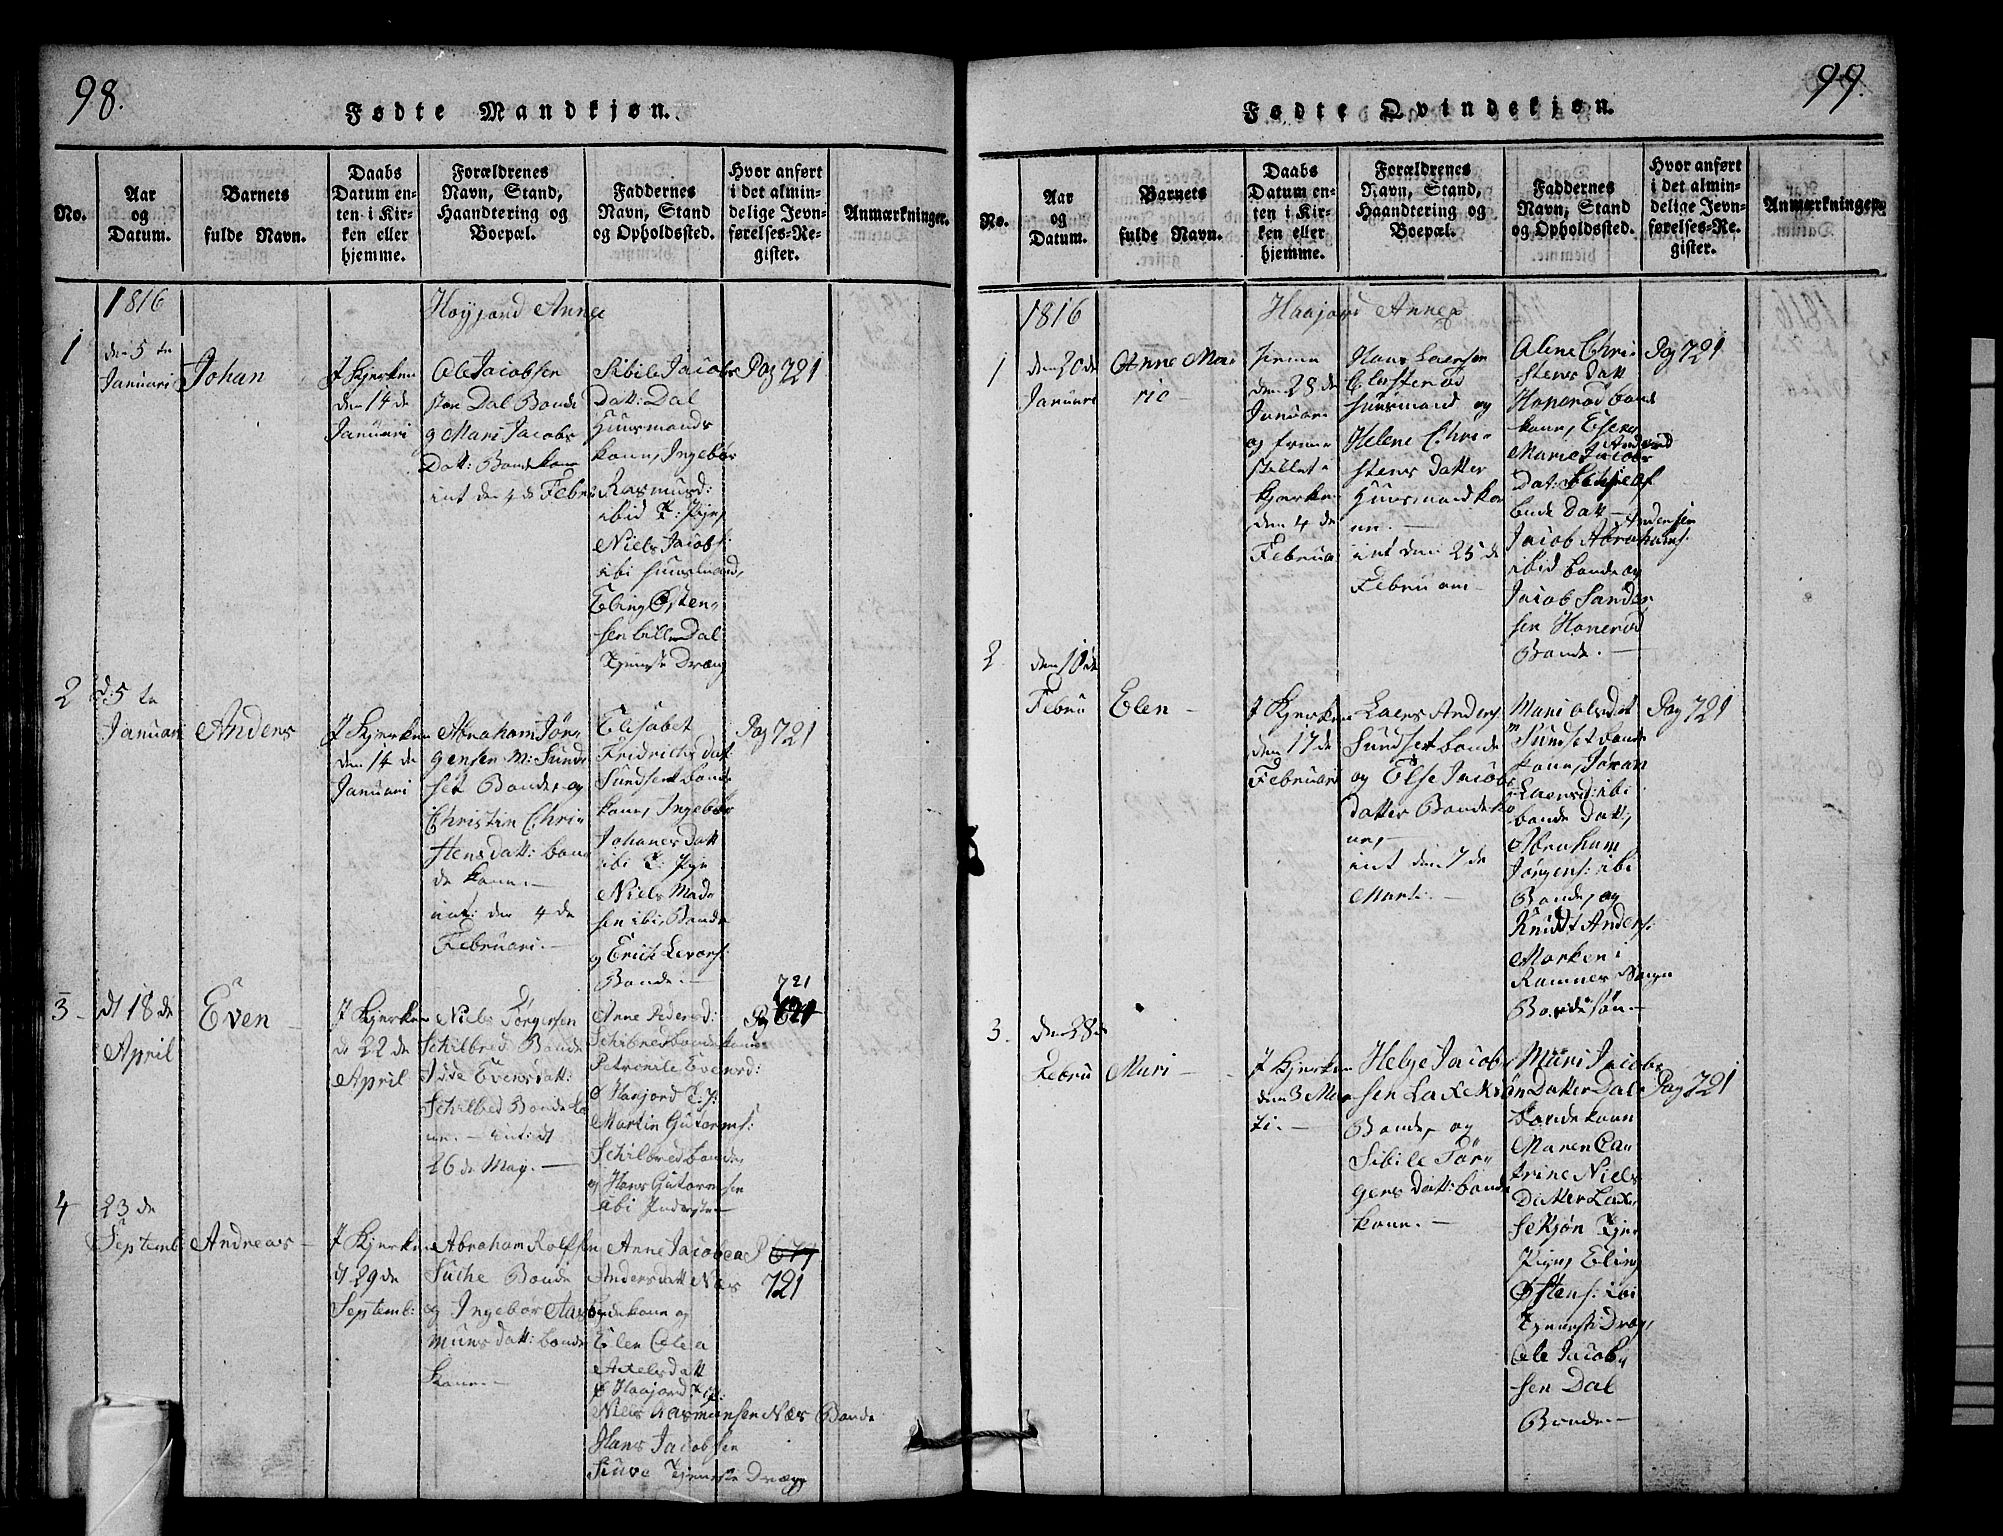 98.
Fødte Mandkjøn.
No.
Aar
og
Datum.
Barnets
fulde Navn.
Daabs
Datum en-
ten i Kir-
ken eller
hjemme.
Forældrenes
Navn, Stand,
Haandtering og
Boepæl.
Faddernes
Navn, Stand
og Opholdssted.
Hvor anført
i det almin-
delige Jevn-
førelses-Re-
gister.
Anmærkninger.
1816
Høyjord Annex
1
den 5 te
Januari
Johan
I Kjerken
den 14 de
Januari
Ole Jacobsen
Dal Bonde
og Mari Jacobs
Datt: Bondekone
int den 4 de Febru
Sibile Jacobs
Datt: Dal
Huusmands
kone, Ingebør
Rasmusd:
ibid T: Pige,
Niels Jacobs:
ibi Huusmand,
Eling Østen
sen Dal
Tjeneste Dreng
Pag 721
2
d: 5 te
Januari
Anders
I Kjerken
den 14 de
Januari
Abraham Jør
gensen M: Sund
set Bonde, og
Christin Chri
stensdatt: bon
de kone. —
int: den 4 de
Februari. —
Elisabet
Fridrichs dat
Sundset bonde
kone, Ingebør
Johanes datt
ibi T: Pige
Niels Mad
sen ibi, Bonde
og Erich Levors:
Bonde. —
Pag 721
3 -
d 18 de
April
Even
I Kjerken
d 22 de
April
Niels Jørgensen
Schilbred Bonde
Idde Evensdatt:
Schilbred Bonde ko
ne. — int: d
26 de May. —
Anne Pedersd:
Schilbred bonde kone
Petronile Evensd:
Haajord T. P:
Martin Gutorms:
Schilbred bonde,
og Hans Gutormsen
ibi
721
Pag
4
23 de
Septemb:
Andreas
I Kjerken
d 29 de
Septemb:
Abraham Rolfsen
Bonde
og Ingebør Aas
munsdatt: bonde
kone. —
Anne Jacobea
Andersdatt Næs
bondekone og
Elen Olea
Axelsdatt
Haajord T: P:
Niels Aasmunsen Næs Bonde
Hans Jacobsen
Tjeneste Dreng
P 677
721
99.
Fødte Qvindekjøn.
No.
Aar
og
Datum.
Barnets
fulde Navn.
Daabs
Datum en-
ten i Kir-
ken eller
hjemme.
Forældrenes
Navn, Stand,
Haandtering og
Boepæl.
Faddernes
Navn, Stand
og Opholdssted.
Hvor anført
i det almin-
delige Jevn-
førelses-Re-
gister.
Anmærkninger.
1816
Haajord Annex
1
den 20 de
Januari
Anne Ma
rie
hjeme
den 28 de
Januari
og frem
stillet i
kjerken
den 4 de
Februa
Hans Laersen
Huusmand og
Helene Chri
stens datter
Huusmand ko
ne. —
int den 25 de
Februari
Alene Chri
stens datt
Honerød bonde
kone,
Marie Jacobs
Dat:
bonde Datt
Jacob Abrahams:
ibid bonde og
Jacob Sander
sen Honerød
Bonde. —
Pag 721
2
den 10 de
Febru
Elen —
I Kjerken
den 17 de
Februari
Laers Anders:
Sundset bonde
og Else Jacobs
datter Bonde ko
ne,
int den 7 de
Marti. —
Mari olsdat
Sundset bonde
kone, Joran
Laersd: ibi
bonde datt,
Abraham
Jørgens: ibi
Bonde, og
Knudt Anders:
Morken i
Ramnes Sogn
Bonde søn —
Pag 721
3.
den 28 de
Febru
Mari —
I Kjerken
den 3 Mar
ti. —
Helje Jacob
sen Laxekjøn
Bonde, og
Sibile Jør
gens datt: bonde
kone. —
Mari Jacobs
Datter Dal
bonde kone
Maren Ca
trine Niels
Datter Lax
sekjøn Tje:
Pige, Eling
Østens: ibi
Tjeneste Dreng,
Ole Jacob
sen Dal
Bonde —
Pag 721